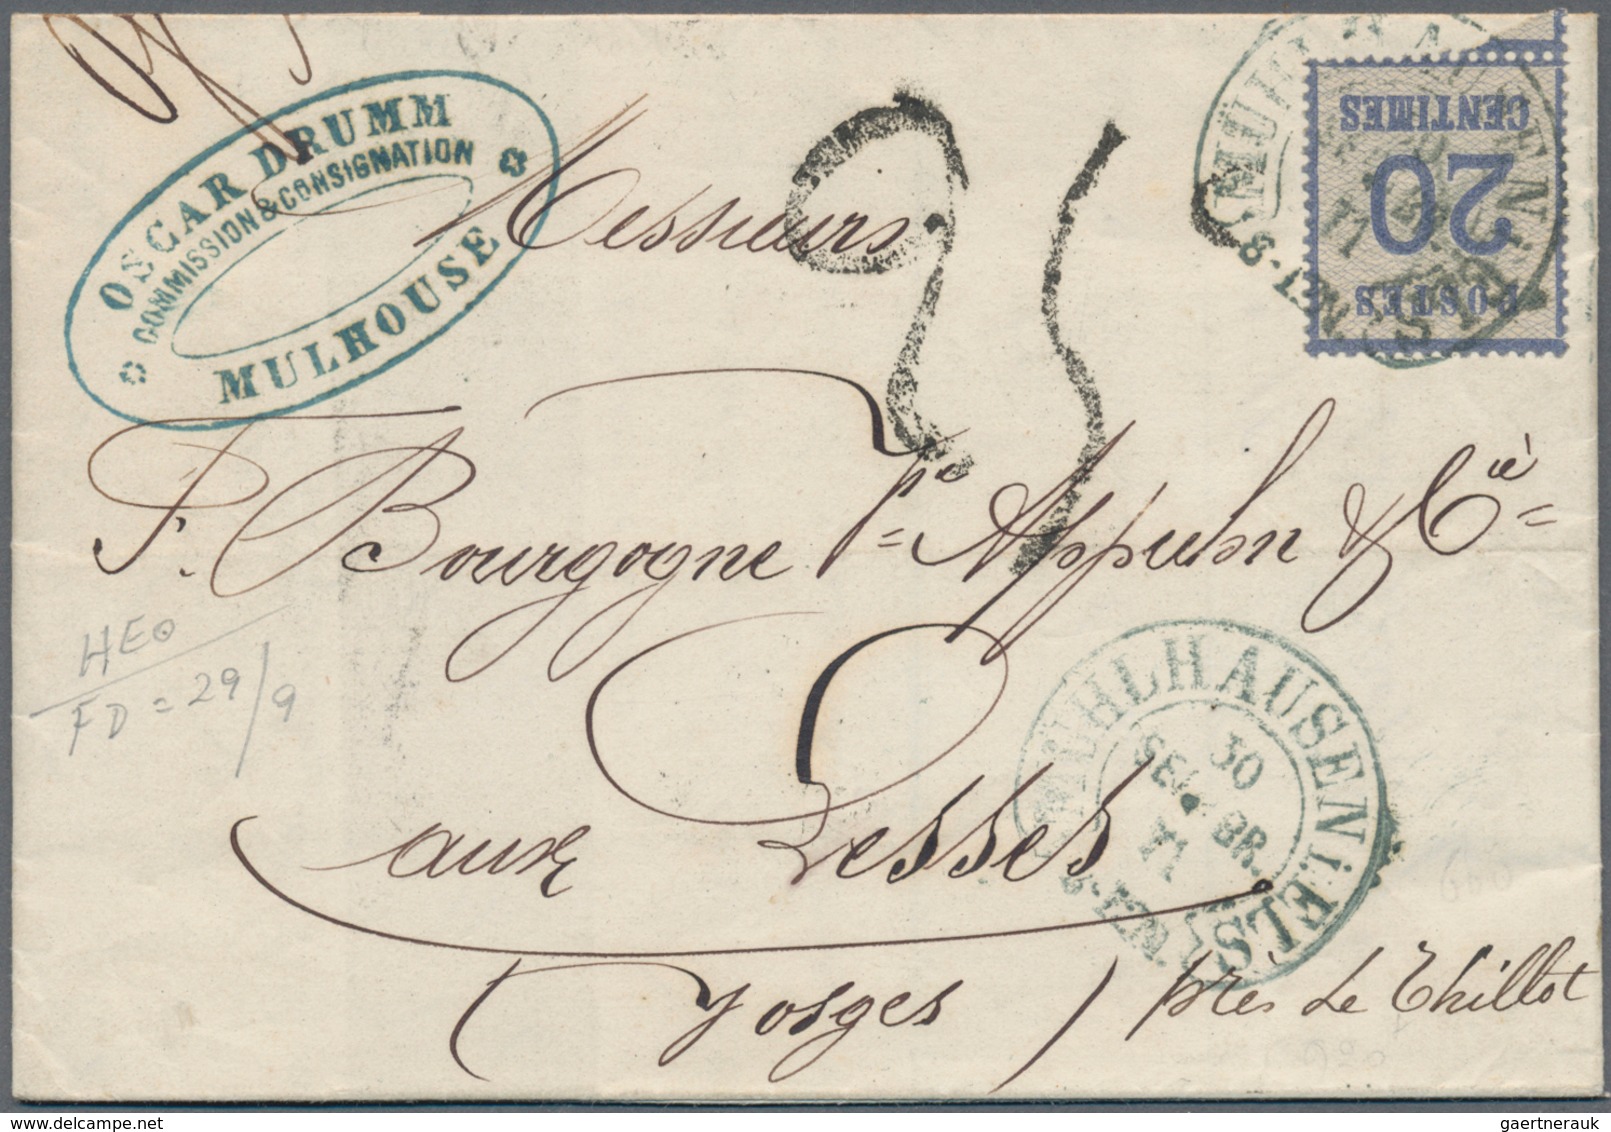 OSCAR DRUMM
COMMISSION & CONSIGNATION
MULHOUSE
25
POSTES
20
CENTIMES
Messieurs
F. Bourgogne Appuhn & Cie
aux Lesses
(Vosges) près Le Thillot
MÜHLHAUSEN I. ELSASS
30
SEPTBR.
71
HEO
FD = 29/9
gaertnerauk